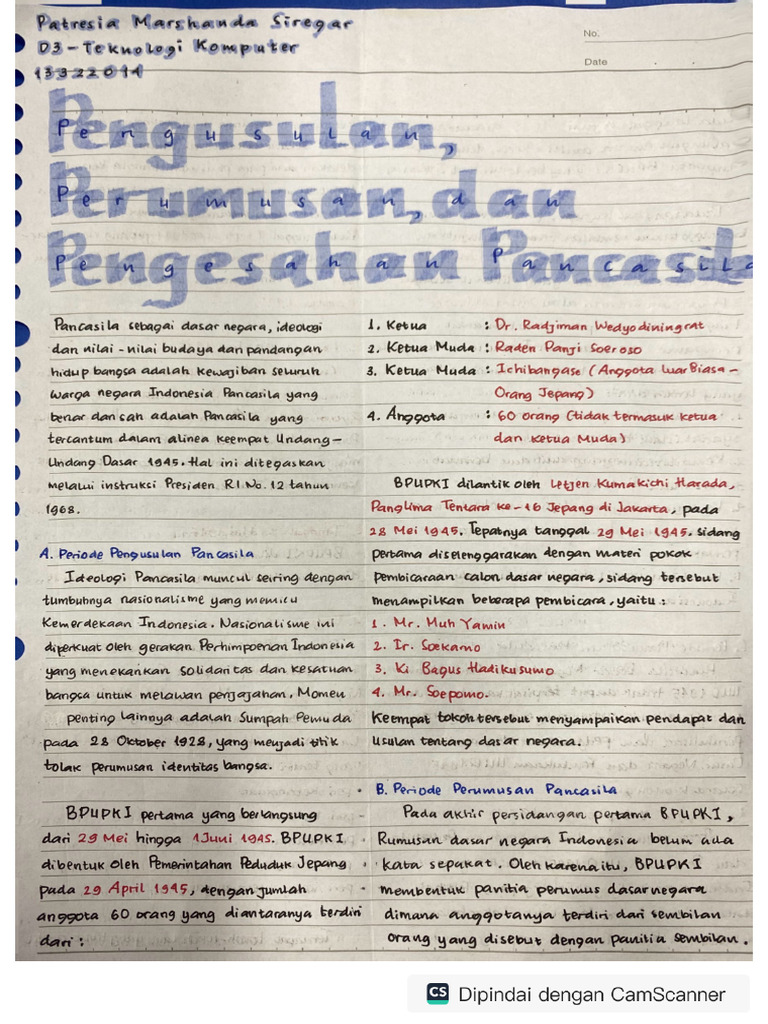 Patresia Marshanda Siregar
D3-Teknologi Komputer
13322014
No.
Date
Pengusulan,
Perumusan, dan
Pengesahan Pancasila
Pancasila sebagai dasar negara, ideologi
dan nilai-nilai budaya dan pandangan
hidup bangsa adalah kewajiban seluruh
warga negara Indonesia Pancasila yang
benar dan sah adalah Pancasila yang
tercantum dalam alinea keempat Undang-
Undang Dasar 1945. Hal ini ditegaskan
melalui instruksi Presiden R.I. No. 12 tahun
1968.
A. Periode Pengusulan Pancasila
Ideologi Pancasila muncul seiring dengan
tumbuhnya nasionalisme yang memicu
Kemerdekaan Indonesia. Nasionalisme ini
diperkuat oleh gerakan Perhimpoenan Indonesia
yang menekankan solidaritas dan kesatuan
bangsa untuk melawan penjajahan. Momen
penting lainnya adalah Sumpah Pemuda
pada 28 Oktober 1928, yang menjadi titik
tolak perumusan identitas bangsa.
BPUPKI pertama yang berlangsung
dari 29 Mei hingga 1 Juni 1945. BPUPKI
dibentuk oleh Pemerintahan Peduduk Jepang
pada 29 April 1945, dengan jumlah
anggota 60 orang yang diantaranya terdiri
dari :
1. Ketua : Dr. Radjiman Wedyodiningrat
2. Ketua Muda : Raden Panji Soeroso
3. Ketua Muda : Ichibangase (Anggota luar Biasa-
Orang Jepang)
4. Anggota : 60 orang (tidak termasuk ketua
dan ketua Muda)
BPUPKI dilantik oleh Letjen Kumakichi Harada,
Panglima Tentara ke-16 Jepang di Jakarta, pada
28 Mei 1945. Tepatnya tanggal 29 Mei 1945. sidang
pertama diselenggarakan dengan materi pokok
pembicaraan calon dasar negara, sidang tersebut
menampilkan beberapa pembicara, yaitu :
1. Mr. Muh Yamin
2. Ir. Soekarno
3. Ki Bagus Hadikusumo
4. Mr. Soepomo.
Keempat tokoh tersebut menyampaikan pendapat dan
usulan tentang dasar negara.
B. Periode Perumusan Pancasila
Pada akhir persidangan pertama BPUPKI,
Rumusan dasar negara Indonesia belum ada
kata sepakat. Oleh karena itu, BPUPKI
membentuk panitia perumus dasar negara
dimana anggotanya terdiri dari sembilan
orang yang disebut dengan panitia sembilan.
CS Dipindai dengan CamScanner